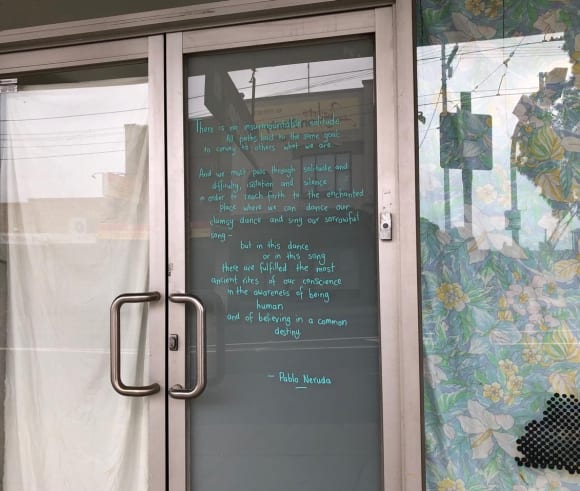 There is no insurmountable solitude.
All paths lead to the same goal:
to convey to others what we are.
And we must pass through solitude and
difficulty, isolation and silence
in order to reach forth to the enchanted
place where we can dance our
clumsy dance and sing our sorrowful
song -
but in this dance
or in this song
there are fulfilled the most
ancient rites of our conscience
in the awareness of being
human
and of believing in a common
destiny.
- Pablo Neruda